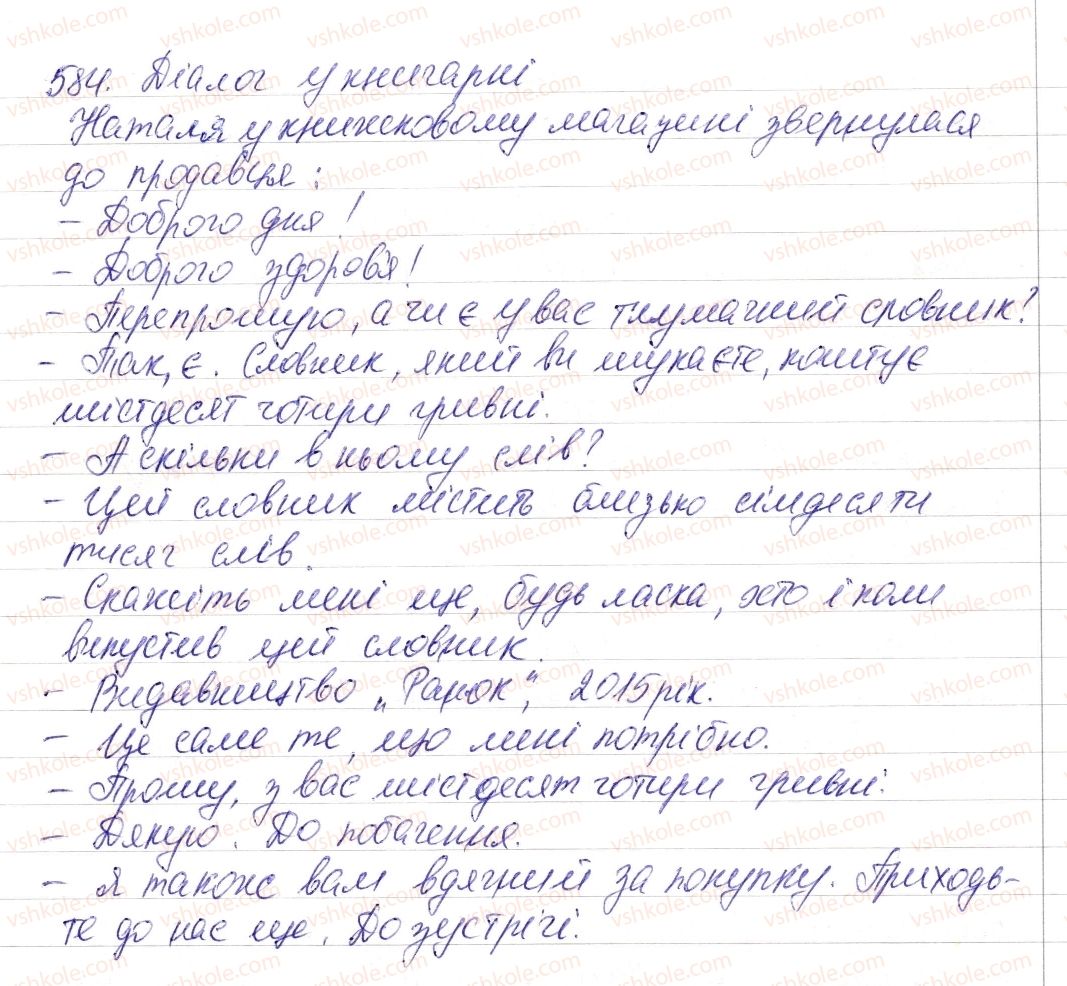 584. Діалог у книгарні
Наталя у книжковому магазині звернулася
до продавця:
– Доброго дня!
– Доброго здоров'я!
– Перепрошую, а чи є у вас тлумачний словник?
– Так, є. Словник, який ви шукаєте, коштує
шістдесят чотири гривні.
– А скільки в ньому слів?
– Цей словник містить близько сімдесяти
тисяч слів.
– Скажіть мені ще, будь ласка, хто і коли
випустив цей словник.
– Видавництво „Ранок", 2015 рік.
– Це саме те, що мені потрібно.
– Прошу, з вас шістдесят чотири гривні.
– Дякую. До побачення.
– Я також вам вдячний за покупку. Приходь-
те до нас ще. До зустрічі.